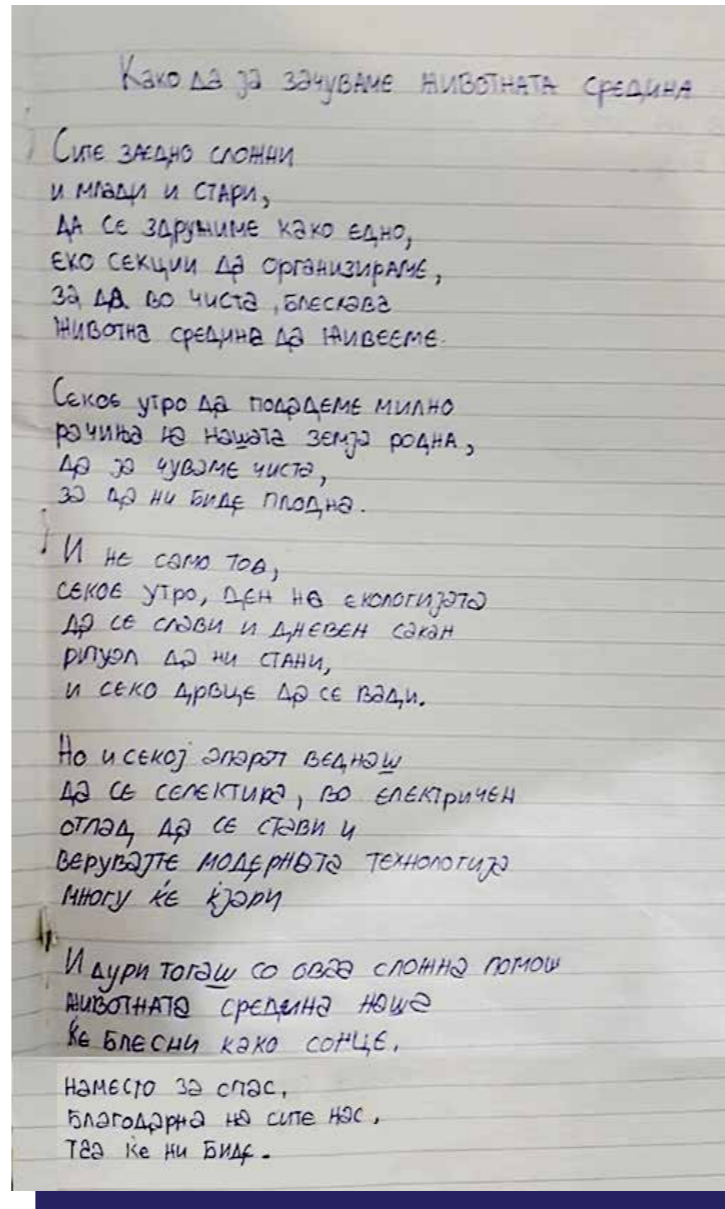 Како да ја зачуваме животната средина
Сите заедно сложни
и млади и стари,
да се здружиме како едно,
еко секции да организираме,
за да во чиста, блескава
животна средина да живееме.
Секое утро да подадеме милно
рачиња на нашата земја родна,
да ја чуваме чиста,
за да ни биде плодна.
И не само тоа,
секое утро, ден на екологијата
да се слави и дневен сакан
ритуал да ни стани,
и секо дрвце да се вади.
Но и секој апарат веднаш
да се селектира, во електричен
отпад да се стави и
верувајте модерната технологија
многу ќе ќјари
И дури тогаш со оваа сложна помош
животната средина наша
ќе блесни како сонце,
наместо за спас,
благодарна на сите нас,
таа ќе ни биде.